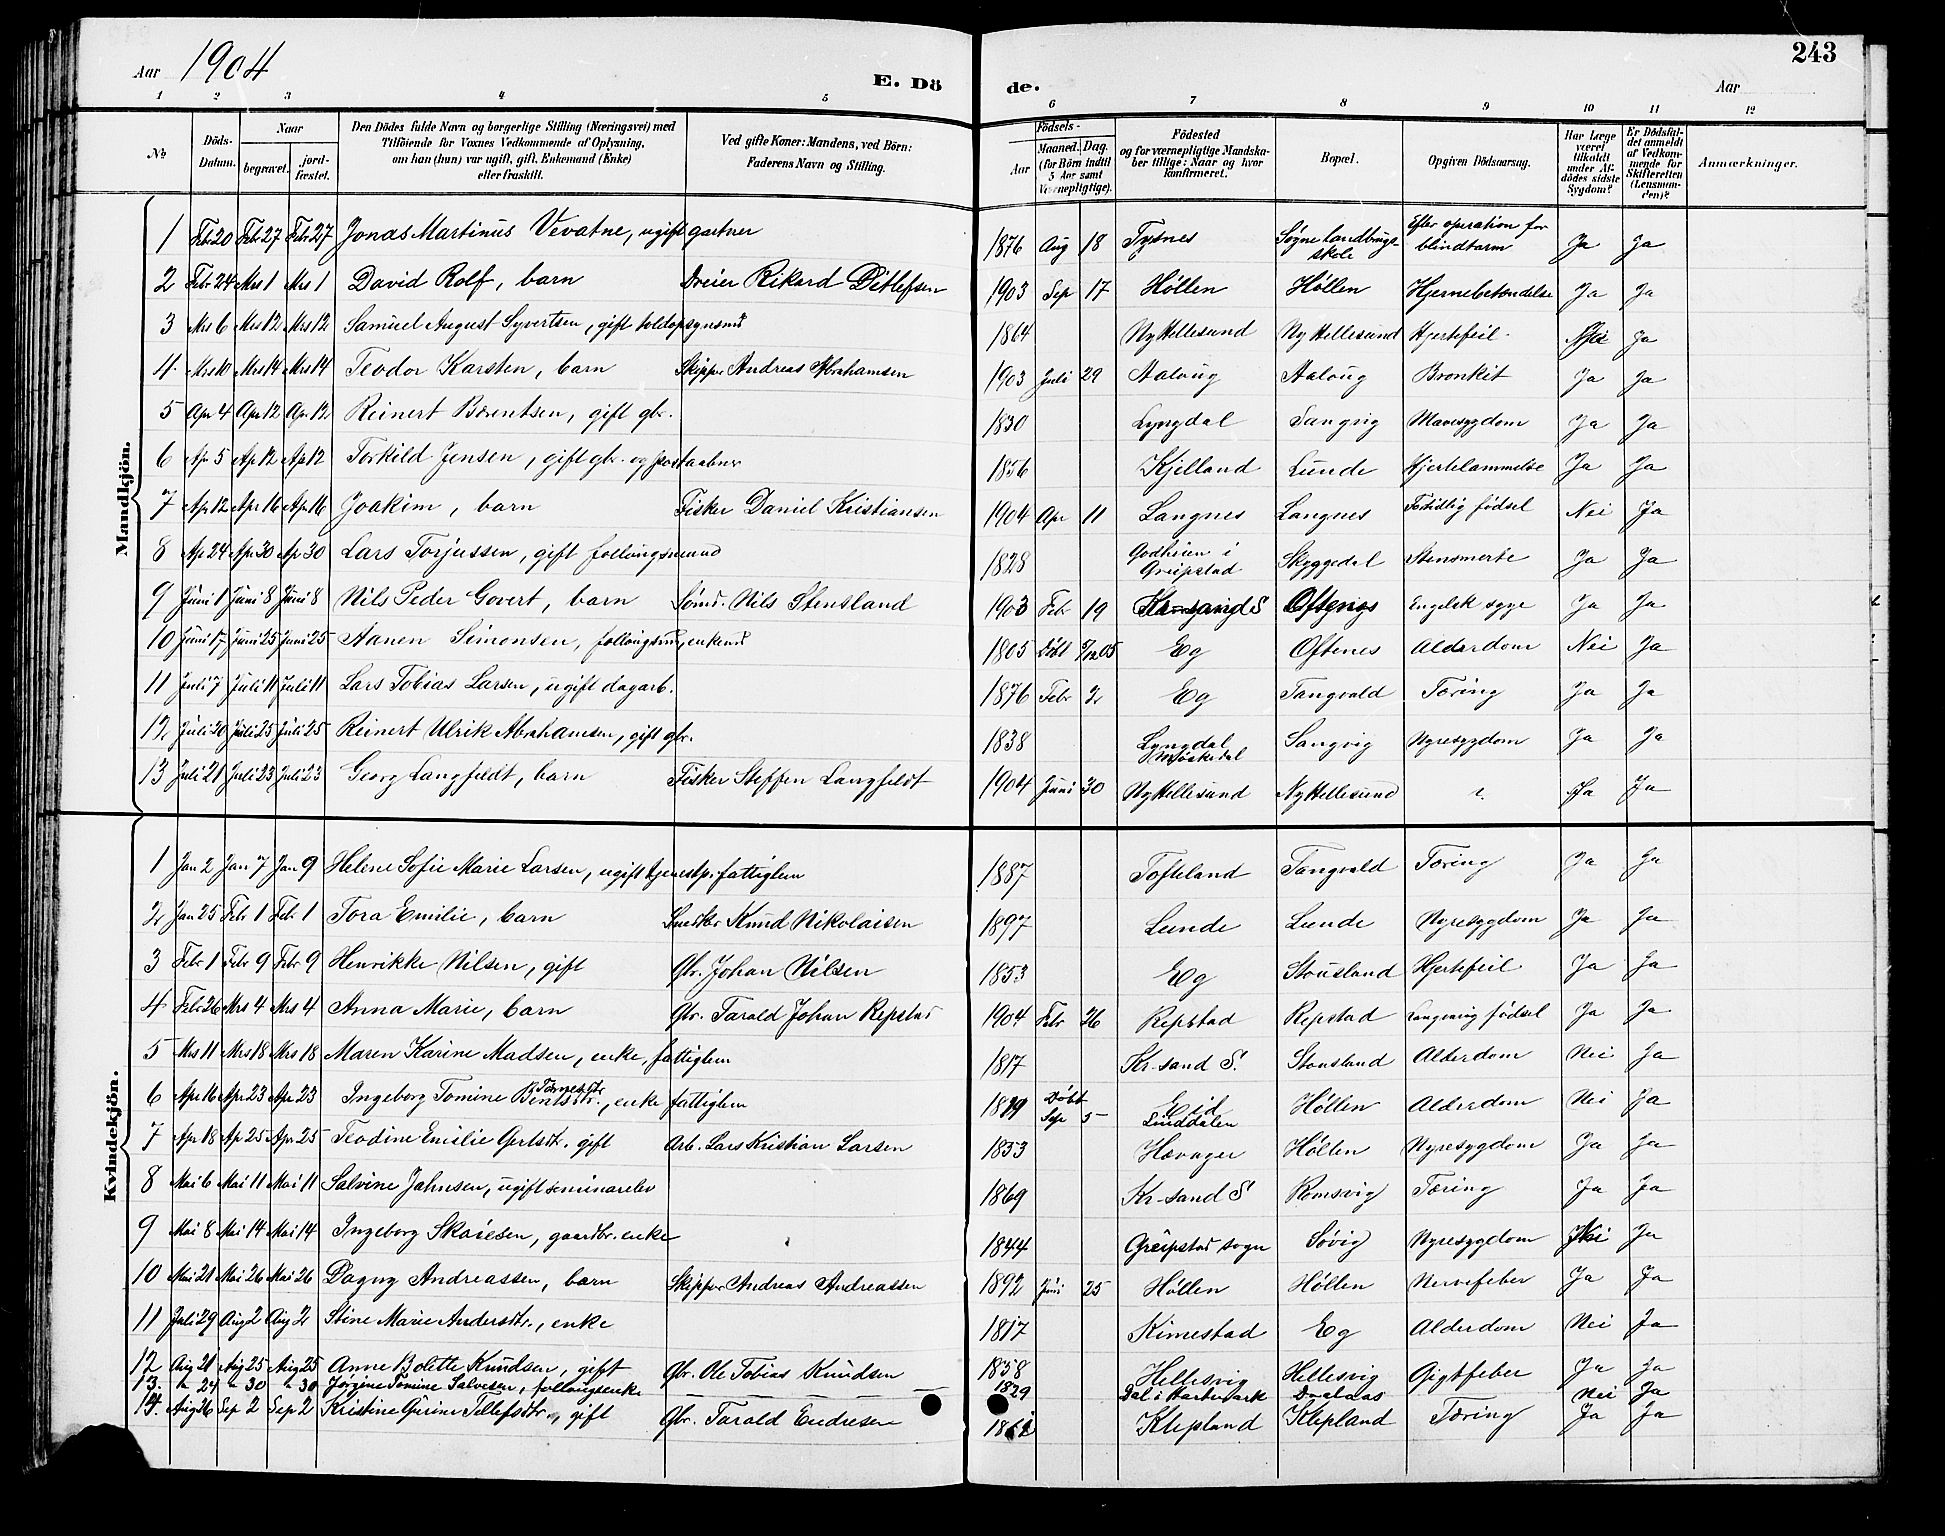 Aar 1904 E. Dö de. Aar 243
1 2 3 4 5 6 7 8 9 10 11 12
No Döds-Datum. Naar begravet. jord-fæstet. Den Dödes fulde Navn og borgerlige Stilling (Næringsvei) med Tilföiende for Voxnes Vedkommende af Oplysning, om han (hun) var ugift, gift, Enkemand (Enke) eller fraskilt. Ved gifte Koner: Mandens, ved Börn: Faderens Navn og Stilling. Födsels- Aar Maaned. Dag. (for Börn indtil 5 Aar samt Værnepligtige). Födested og for værnepligtige Mandskaber tillige: Naar og hvor konfirmeret. Bopæl. Opgiven Dödsaarsag. Har Læge været tilkaldt under Afdödes sidste Sygdom? Er Dödsfaldet anmeldt af Vedkommende for Skifteretten (Lensmanden)? Anmærkninger.
Mandkjön.
1 Febr 20 Febr 27 Febr 27 Jonas Martinus Vevatne, ugift gartner 1876 Aug 18 Tysnes Søgne landbrugsskole Efter operation for blindtarm Ja Ja
2 Febr 24 Mrs 1 Mrs 1 David Rolf, barn Dreier Rikard Ditlefsen 1903 Sep 17 Høllen Høllen Hjernebetændelse Ja Ja
3 Mrs 6 Mrs 12 Mrs 12 Samuel August Syvertsen, gift toldopsynsmd 1864 Ny Hellesund Ny Hellesund Hjertefeil Nei Ja
4 Mrs 10 Mrs 14 Mrs 14 Teodor Karsten, barn Skipper Andreas Abrahamsen 1903 Juli 29 Aaloug Aaloug Bronkit Ja Ja
5 Apr 4 Apr 12 Apr 12 Reinert Berentsen, gift gbr. 1830 Lyngdal Sangvig Mavesygdom Ja Ja
6 Apr 5 Ap 12 Ap 12 Torkild Jensen, gift gbr. og postaabner 1856 Kjelland Lunde Hjertelammelse Ja Ja
7 Apr 12 Apr 16 Apr 16 Joakim, barn Fisker Daniel Kristiansen 1904 Apr 11 Langnes Langnes Fortidlig fødsel Nei Ja
8 Ap 24 Apr 30 Ap 30 Lars Torjussen, gift follougsmand 1828 Godheien i Greipstad Skyggedal Stensmerte Ja Ja
9 Juni 1 Juni 8 Juni 8 Nils Peder Govert, barn Sømd. Nils Stensland 1903 Febr 19 Kr-sand S Oftenes Engelsk syge Ja Ja
10 Juni 17 Juni 25 Juni 25 Aanen Simonsen, follougsmd, enkemd 1805 Døbt 5/12 05 Eg Oftenes Alderdom Nei Ja
11 Juli 7 Juli 11 Juli 11 Lars Tobias Larsen, ugift dagarb. 1876 Febr 2 Eg Tangvald Tæring Ja Ja
12 Juli 20 Juli 25 Juli 25 Reinert Ulrik Abrahamsen, gift gbr. 1838 Lyngdal Sangvig Nyresygdom Ja Ja
13 Juli 21 Juli 23 Juli 23 Georg Langfeldt, barn Fisker Steffen Langfeldt 1904 Juni 30 Ny Hellesund Ny Hellesund Ja Ja
Kvindekjön.
1 Jan 2 Jan 7 Jan 9 Helene Sofie Marie Larsen, ugift tjenestp. fattiglem 1887 Tofteland Tangvald Tæring Ja Ja
2 Jan 25 Febr 1 Febr 1 Tora Emilie, barn Snedker Knud Nikolaisen 1897 Lunde Lunde Nyresygdom Ja Ja
3 Febr 1 Febr 9 Febr 9 Henrikke Nilsen, gift Gbr. Johan Nilsen 1853 Eg Stousland Hjertefeil Ja Ja
4 Febr 26 Mrs 4 Mrs 4 Anna Marie, barn Gbr. Tarald Johan Repstad 1904 Febr 26 Repstad Repstad Langvarig fødsel Ja Ja
5 Mrs 11 Mrs 18 Mrs 18 Maren Karine Madsen, enke, fattiglem 1817 Kr-sand S. Stousland Alderdom Nei Ja
6 Apr 16 Apr 23 Apr 23 Ingeborg Tomine , enke fattiglem 1819 Døbt Sep 5 Eid Linddalen Høllen Alderdom Nei Ja
7 Apr 18 Ap 25 Apr 25 Teodine Emilie Gertsdtr. gift Arb. Lars Kristian Larsen 1853 Havager Høllen Nyresygdom Ja Ja
8 Mai 6 Mai 11 Mai 11 Salvine Jahnsen, ugift seminarelev 1869 Kr-sand S Romsvig Tæring Ja Ja
9 Mai 8 Mai 14 Mai 14 Ingeborg Skaiesen, gaardbr. enke 1844 Greipstad sogn Søvig Nyresygdom Nei Ja
10 Mai 21 Mai 26 Mai 26 Dagny Andreassen, barn Skipper Andreas Andreassen 1892 Juni 25 Høllen Høllen Nervefeber Ja Ja
11 Juli 29 Aug 2 Aug 2 Stine Marie Andersdtr., enke 1817 Kimestad Eg Alderdom Nei Ja
12 Aug 21 Aug 25 Aug 25 Anne Bolette Knudsen, gift Gbr. Ole Tobias Knudsen 1858 Hellesvig Hellesvig Gigtfeber Ja Ja
13 " 24 " 30 " 30 Jørgine Tomine Salvesen, follougsenke 1829 Dal i Hartemark Nei Ja
14. Aug 26 Sep 2 Sep 2 Kristine Gurine Tellefsdtr., gift Gbr. Tarald Endresen Klepland Klepland Tæring Ja Ja